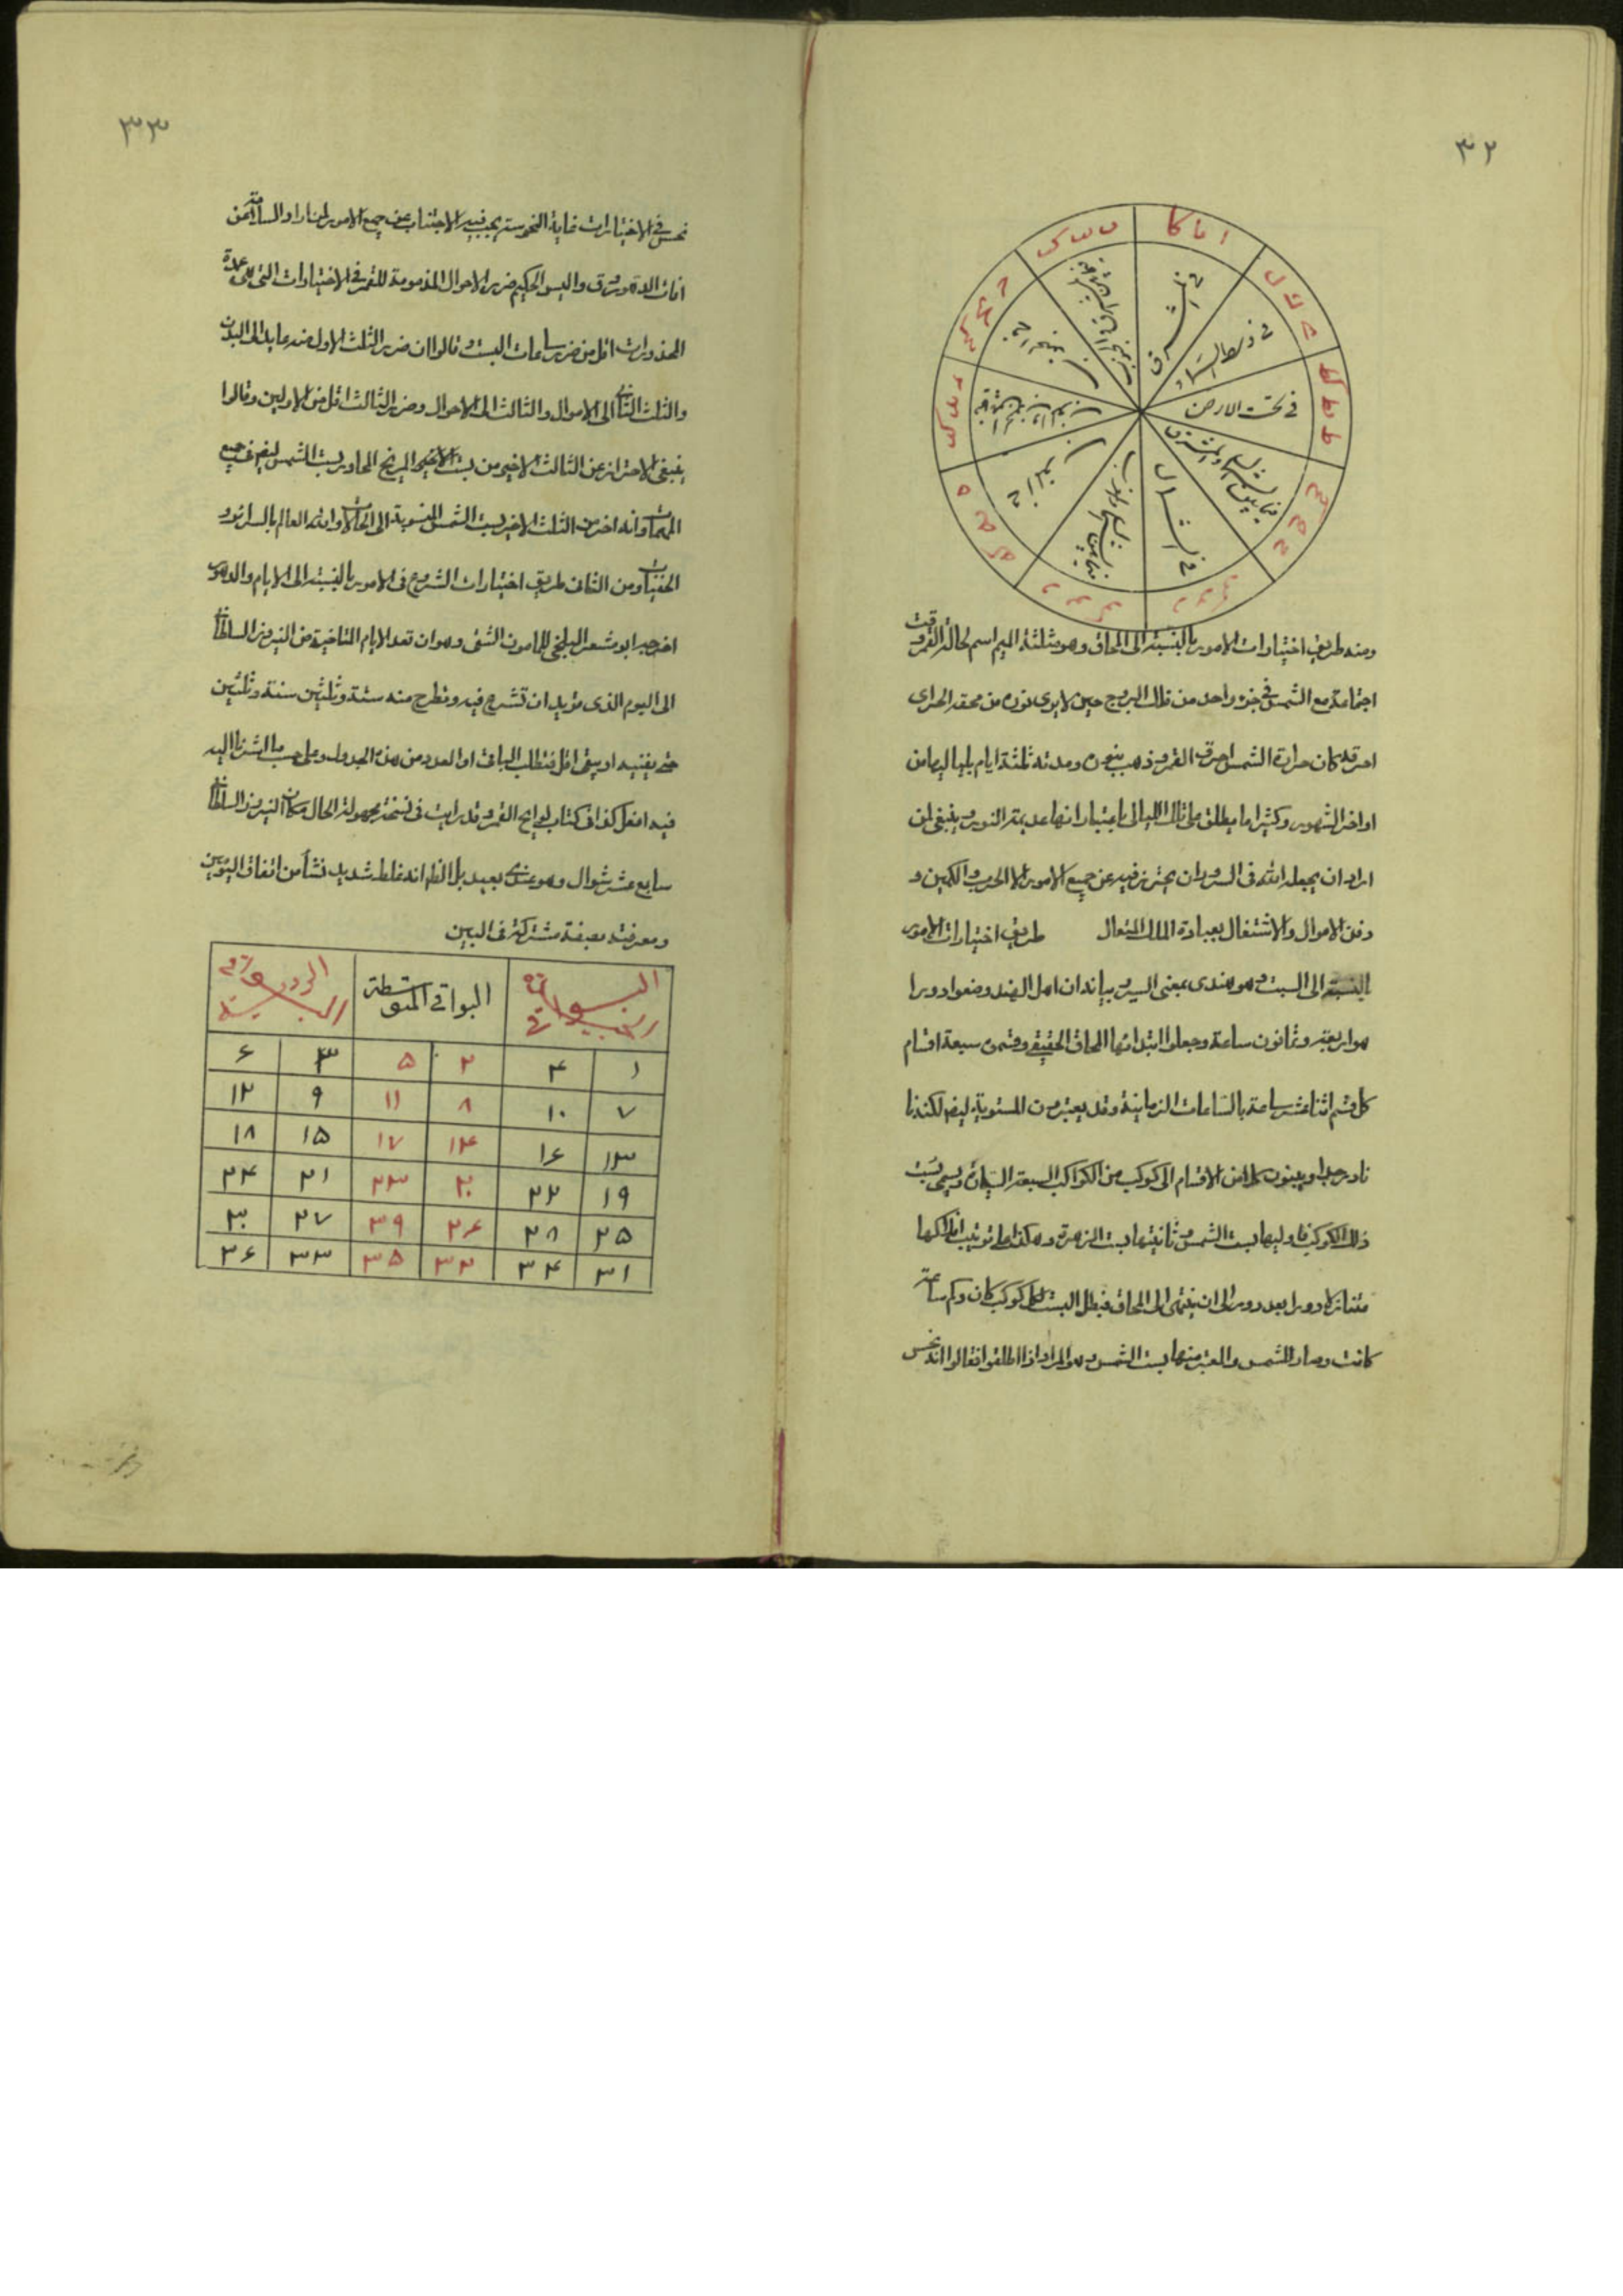 ٣٢
ا يا كا
في المشرق
في وسط السماء
ط يط كط
في تحت الارض
في الشمال
ومنه طريق اختيارات الامور بالنسبة الى المحاق وهو مثلثة الميم اسم لحالة القمر وقت
اجتماعه مع الشمس في جزء واحد من فلك البروج حين لا يرى نوره من محقه الحر اى
احرقه كان حرارة الشمس احرق القمر وذهب بنوره ومدته ثلثة ايام بلياليها من
اواخر الشهور وكثيرا ما يطلق على تلك الليالى باعتبار انها عديمة النور وينبغى لمن
اراد ان يجعله الله فى السرور ان يحترز فيه عن جميع الامور الا الحرب والكمين و
دفن الاموال والاشتغال بعبادة الملك المتعال طريق اختيارات الامور
بالنسبة الى البست وهو هندى بمعنى السير وبيانه ان اهل الهند وضعوا دورا
هو اربعة وثمانون ساعة وجعلوا ابتدائها المحاق الحقيقى وقسموه سبعة اقسام
كل قسم اثنا عشر ساعة بالساعات الزمانية وقد يعتبرون المستوية ايضا لكنه
نادر جدا وينسبون كلا من الاقسام الى كوكب من الكواكب السبعة السيارة ويسمى بست
ذلك الكوكب فاوليها بست الشمس وثانيتها بست الزهرة وهكذا على ترتيب افلاكها
متنازلا دورا بعد دور الى ان ينتهى الى المحاق فبطل البست لاى كوكب كان وكم ساعة
كانت وصار للشمس والمعتبر منها بست الشمس وهو المراد اذا اطلقوا فقالوا انه نحس
٣٣
نحس فى الاختيارات غاية النحوسة يجب فيه الاجتناب عن جميع الامور لمن اراد السلامة عن
افات الدهور وفى واليس الحكيم ضرر الاحوال المذمومة للقمر فى الاختيارات التى هى عمدة
المحذورات اقل من ضرر ساعات البست وقالوا ان ضرر الثلث الاول منه عايد الى البدن
والثلث الثانى الى الاموال والثالث الى الاحوال وضرر الثالث اقل من الاولين وقالوا
ينبغى الاحتراز عن الثالث الاخير من بست المريخ المجاور بست الشمس ايضا فى جميع
المهمات وانه اضر من الثلث الاخير لبست الشمس المنسوبة الى الحالات والله العالم بالسرائر و
الخفيات ومن الثانى طريق اختيارات الشروع فى الامور بالنسبة الى الايام والدهور
اخرجه ابو معشر البلخى للمامون الشقى وهو ان تعد الايام الماضية من النيروز السلطانى
الى اليوم الذى تريد ان تشرع فيه وتطرح منه ستة وثلثين ستة وثلثين
حتى يفنيه او يبقى اقل فتطلب الباقى او العدد من هذا الجدول وعلى حسب ما اشرنا اليه
فيه افعل كذا فى كتاب لوايح القمر وقد رايت فى نسخة مجهولة الحال مكان النيروز السلطانى
سابع عشر شوال وهو عندى بعيد بل الظاهر انه غلط شديد نشأ من اتفاق اليومين
ومعرفته بصفة مشتركة فى البين
البواقى المتوسطة
١ ٤ ٢ ٥ ٣ ٦
٧ ١٠ ٨ ١١ ٩ ١٢
١٣ ١٦ ١٤ ١٧ ١٥ ١٨
١٩ ٢٢ ٢٠ ٢٣ ٢١ ٢٤
٢٥ ٢٨ ٢٦ ٢٩ ٢٧ ٣٠
٣١ ٣٤ ٣٢ ٣٥ ٣٣ ٣٦